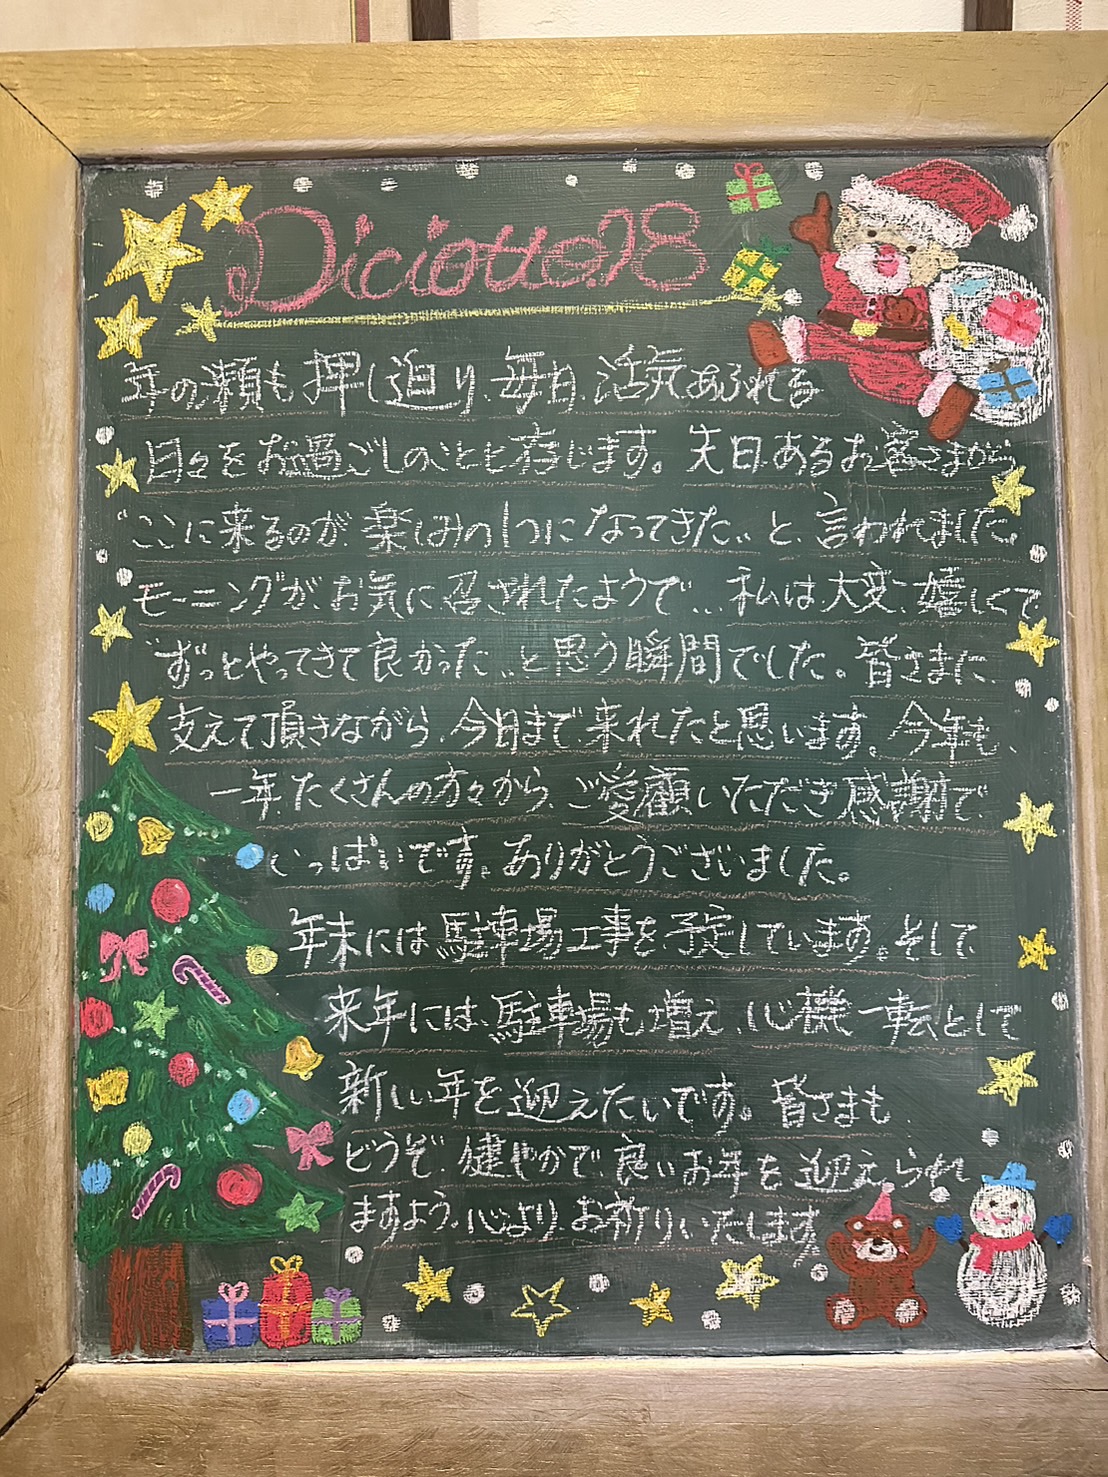 Diciotto.28
年の瀬も押し迫り、毎日、活気あふれる
日々をお過ごしのことと存じます。先日、あるお客さまから
“ここに来るのが楽しみの1つになってきた”と、言われました。
モーニングが、お気に召されたようで…私は、大変、嬉しくて
“ずっとやってきて良かった”と思う瞬間でした。皆さまに、
支えて頂きながら、今日まで、来れたと思います。今年も、
一年、たくさんの方々から、ご愛顧いただき感謝で、
いっぱいです。ありがとうございました。
年末には駐車場工事を予定しています。そして
来年には、駐車場も増え、心機一転として
新しい年を迎えたいです。皆さまも
どうぞ、健やかで良いお年を迎えられ
ますよう。心より、お祈りいたします。